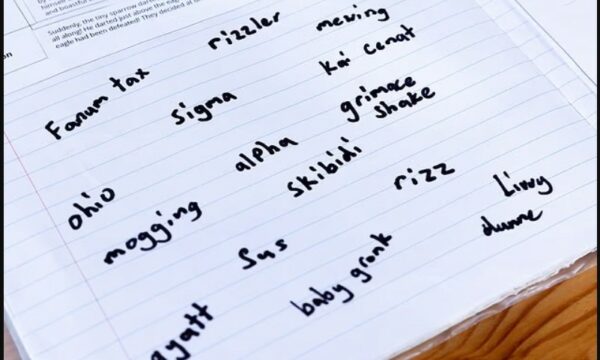 Suddenly, the tiny sparrow
all along! He darted just above the
eagle had been defeated! They decided
rizzler
mewing
Fanum tax
sigma
Kai Cenat
grimace
shake
ohio
alpha
skibidi
mogging
rizz
Livvy
dunne
sus
baby gronk
gyatt